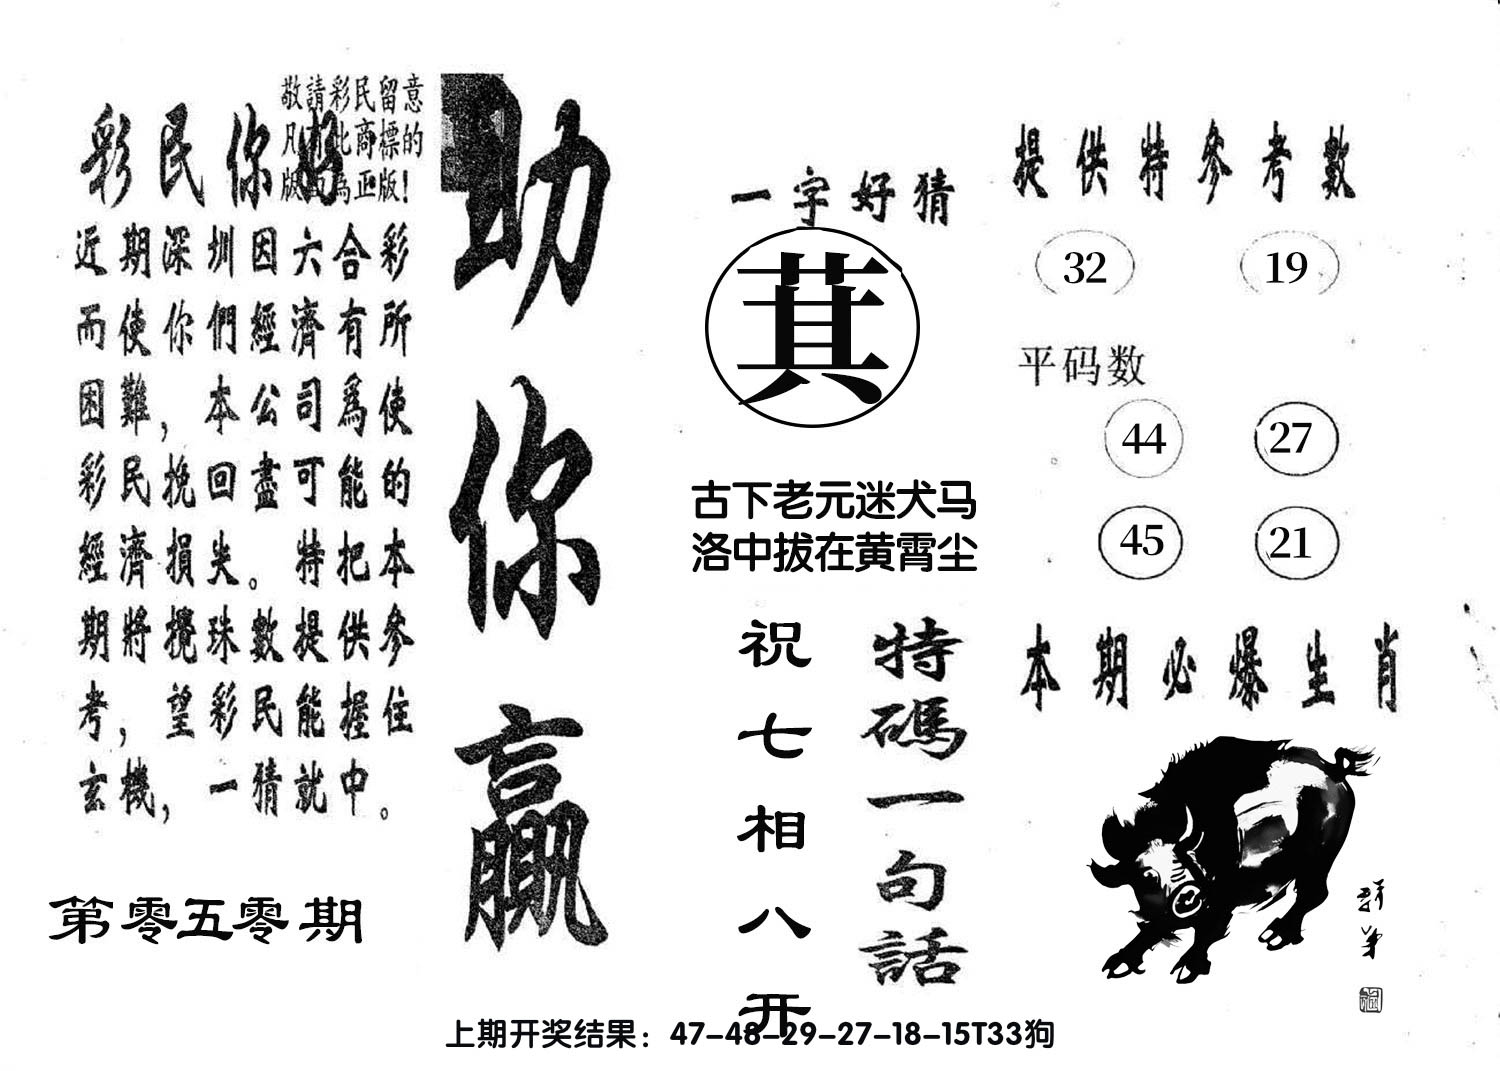 敬請彩民留意
凡有此商標的
版面為正版！
彩民你好
近期深圳因六合彩
而使你們經濟有所
困難，本公司爲使
彩民挽回盡可能的
經濟損失。特把本
期將攪珠數提供參
考，望彩民能握住
玄機，一猜就中。
第零五零期
助你贏
一字好猜
萁
古下老元迷犬马
洛中拔在黄霄尘
特碼一句話
祝七相八开
提供特參考數
32 19
平码数
44 27
45 21
本期必爆生肖
上期开奖结果：47-48-29-27-18-15T33狗